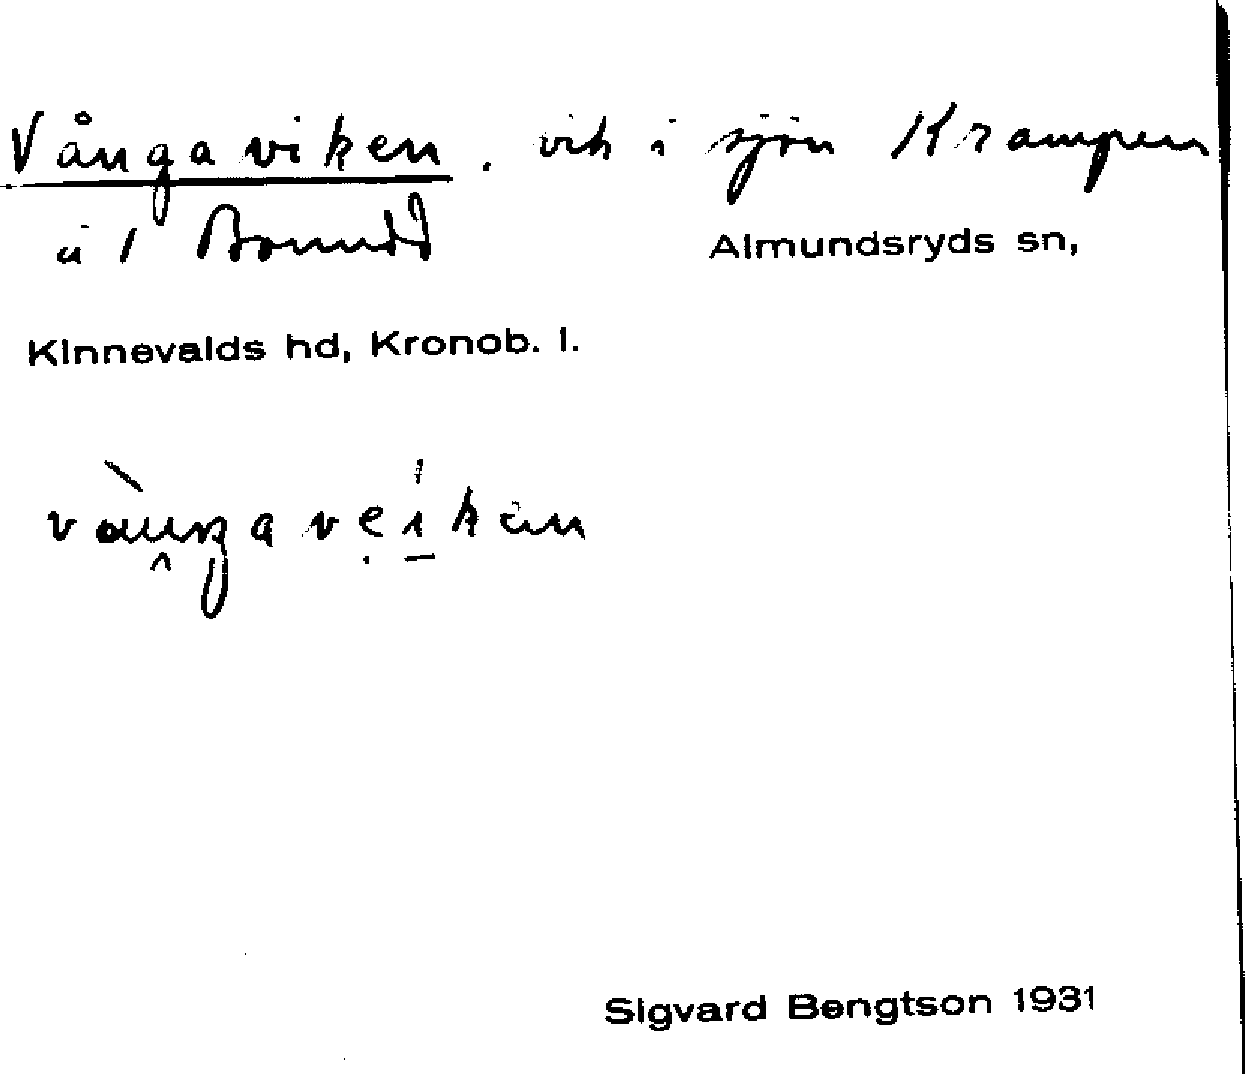 Vångaviken. vik i sjön Krampen
å 1
Almundsryds sn,
Kinnevalds hd, Kronob. l.
Sigvard Bengtson 1931